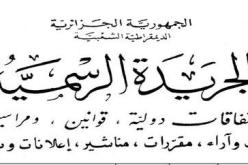 الجمهورية الجزائرية
الديمقراطية الشعبية
الجريدة الرسمية
اتفاقات دولية، قوانين، ومراسيم
وآراء، مقررات، مناشير، إعلانات و